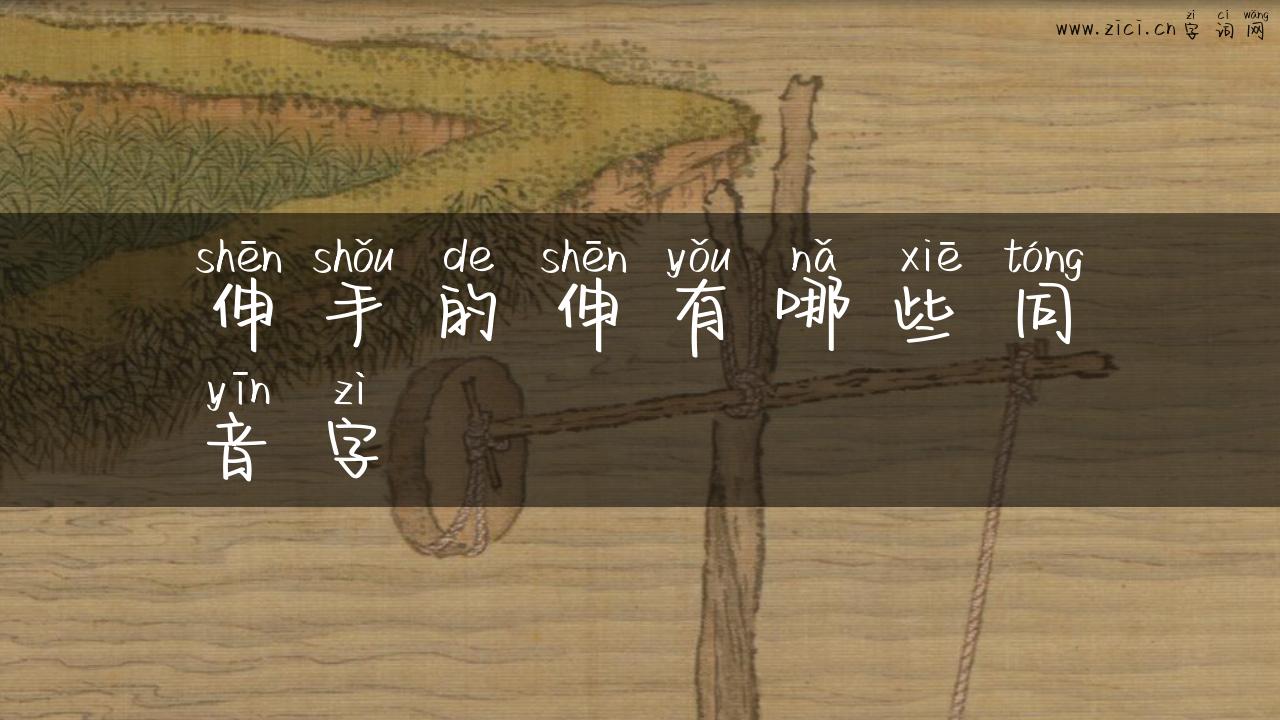 zì cí wǎng
www.zici.cn 字词网
shēn shǒu de shēn yǒu nǎ xiē tóng
伸手的伸有哪些同
yīn zì
音字